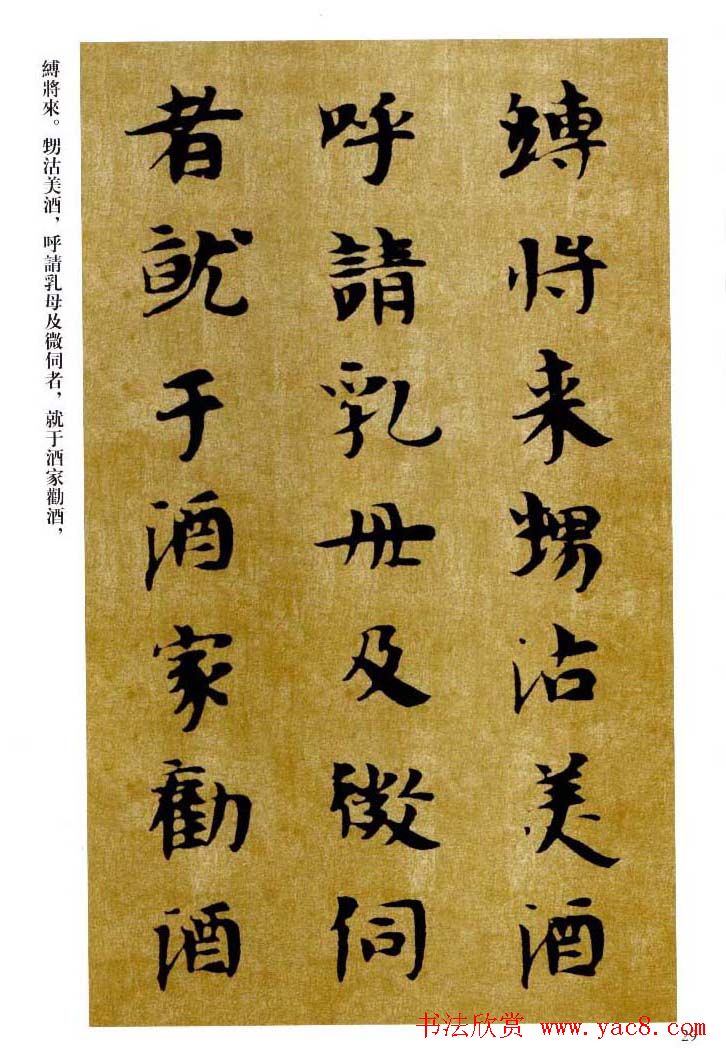 縛將來。甥沽美酒，呼請乳母及微伺者，就于酒家勸酒，
縛将来甥沽美酒
呼請乳母及微伺
者就于酒家勸酒
书法欣赏 www.yac8.com
29